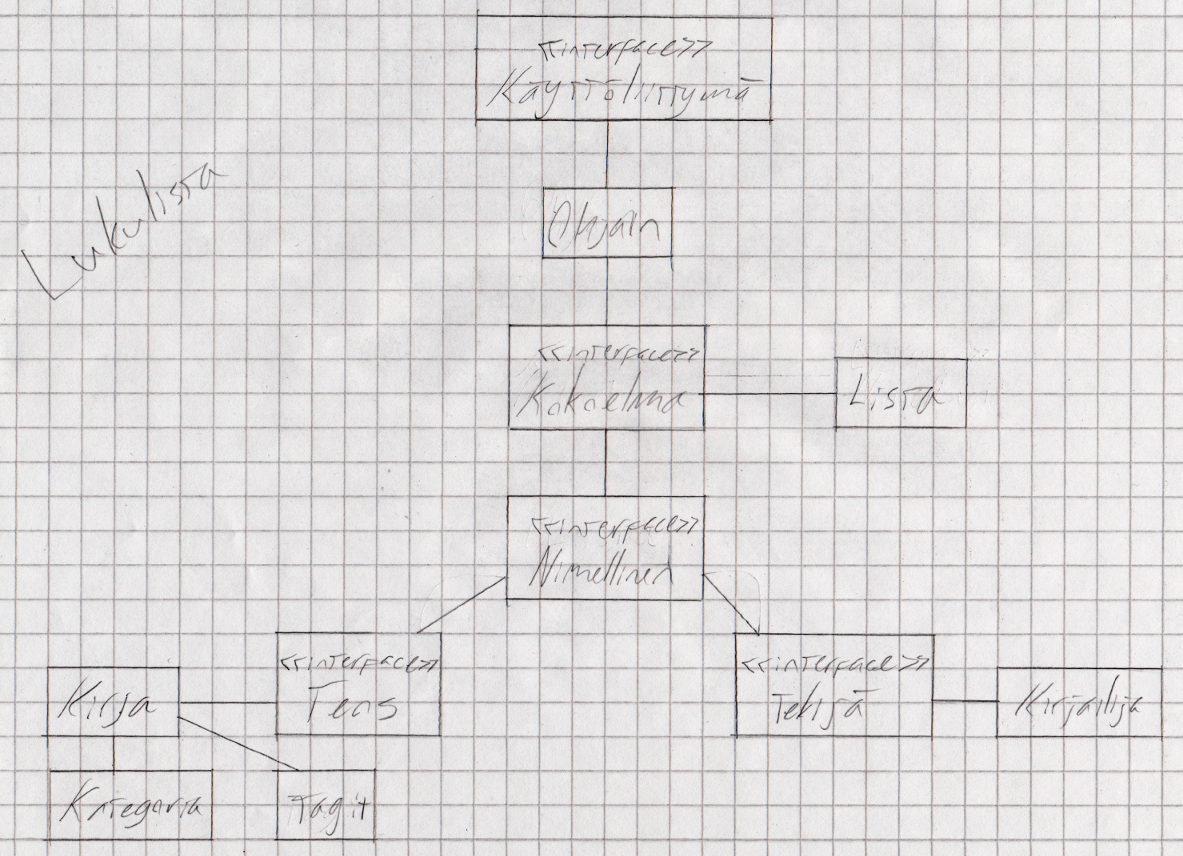 <<interface>>
Käyttöliittymä
Lukulista
Ohjain
<<interface>>
Kokoelma
Lista
<<interface>>
Nimellinen
<<interface>>
Teos
<<interface>>
Tekijä
Kirja
Kirjailija
Kategoria
Tagit